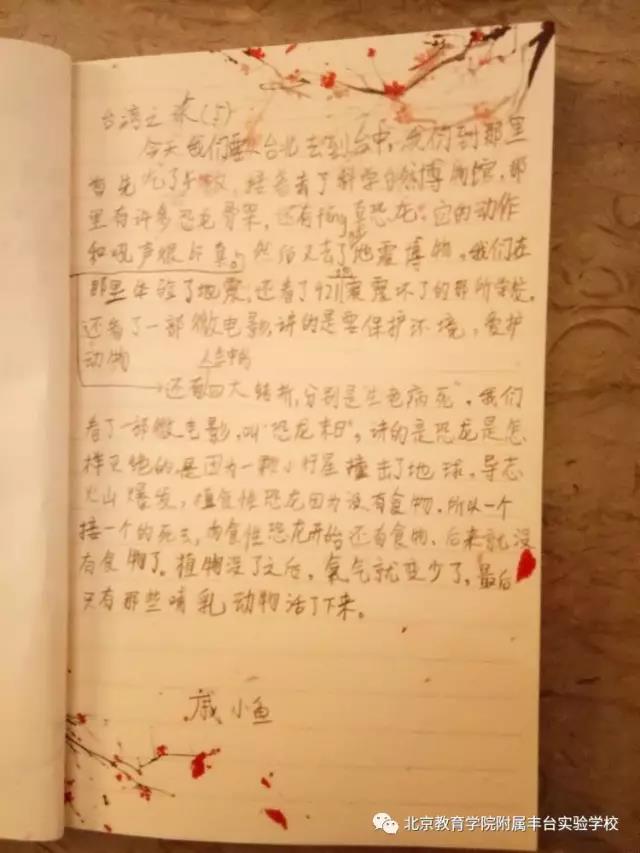 台湾之旅(5)
今天我们要从台北去到台中,我们到那里
首先吃了午饭,接着去了科学自然博物馆,那
里有许多恐龙骨架,还有fǎng真恐龙。它的动作
和吼声很仿真。然后又去了地震博物,我们在
那里体验了地震,还看了921地震震坏了的那所学校。
还看了一部微电影,讲的是要保护环境,爱护
动物
人生中的
还有四大转折,分别是“生老病死”,我们
看了一部微电影,叫“恐龙末日”,讲的是恐龙是怎
样灭绝的,是因为一颗小行星撞击了地球,导志
火山爆发,植食性恐龙因为没有食物,所以一个
接一个的死去,肉食性恐龙开始还有食物,后来就没
有食物了。植物没了之后,氧气就变少了,最后
只有那些哺乳动物活了下来。
戚小鱼
北京教育学院附属丰台实验学校